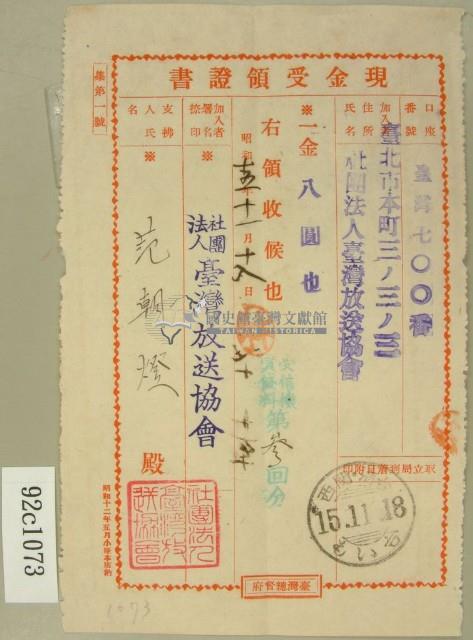 集第一號
現金受領證書
口座番號
臺灣七〇〇番
加入者住所氏名
臺北市本町三ノ三ノ三
社團法人臺灣放送協會
※一金八圓也
右領收候也
昭和十五年十一月十八日
受信機
第參回分
加入者署名捺印
社團法人臺灣放送協會
支拂人氏名
※
范朝燈
殿
取立局到著日附印
15.11.18
社團法人臺灣放送協會
臺灣總督府
國史館臺灣文獻館
TAIWAN HISTORICA
92c1073
1073